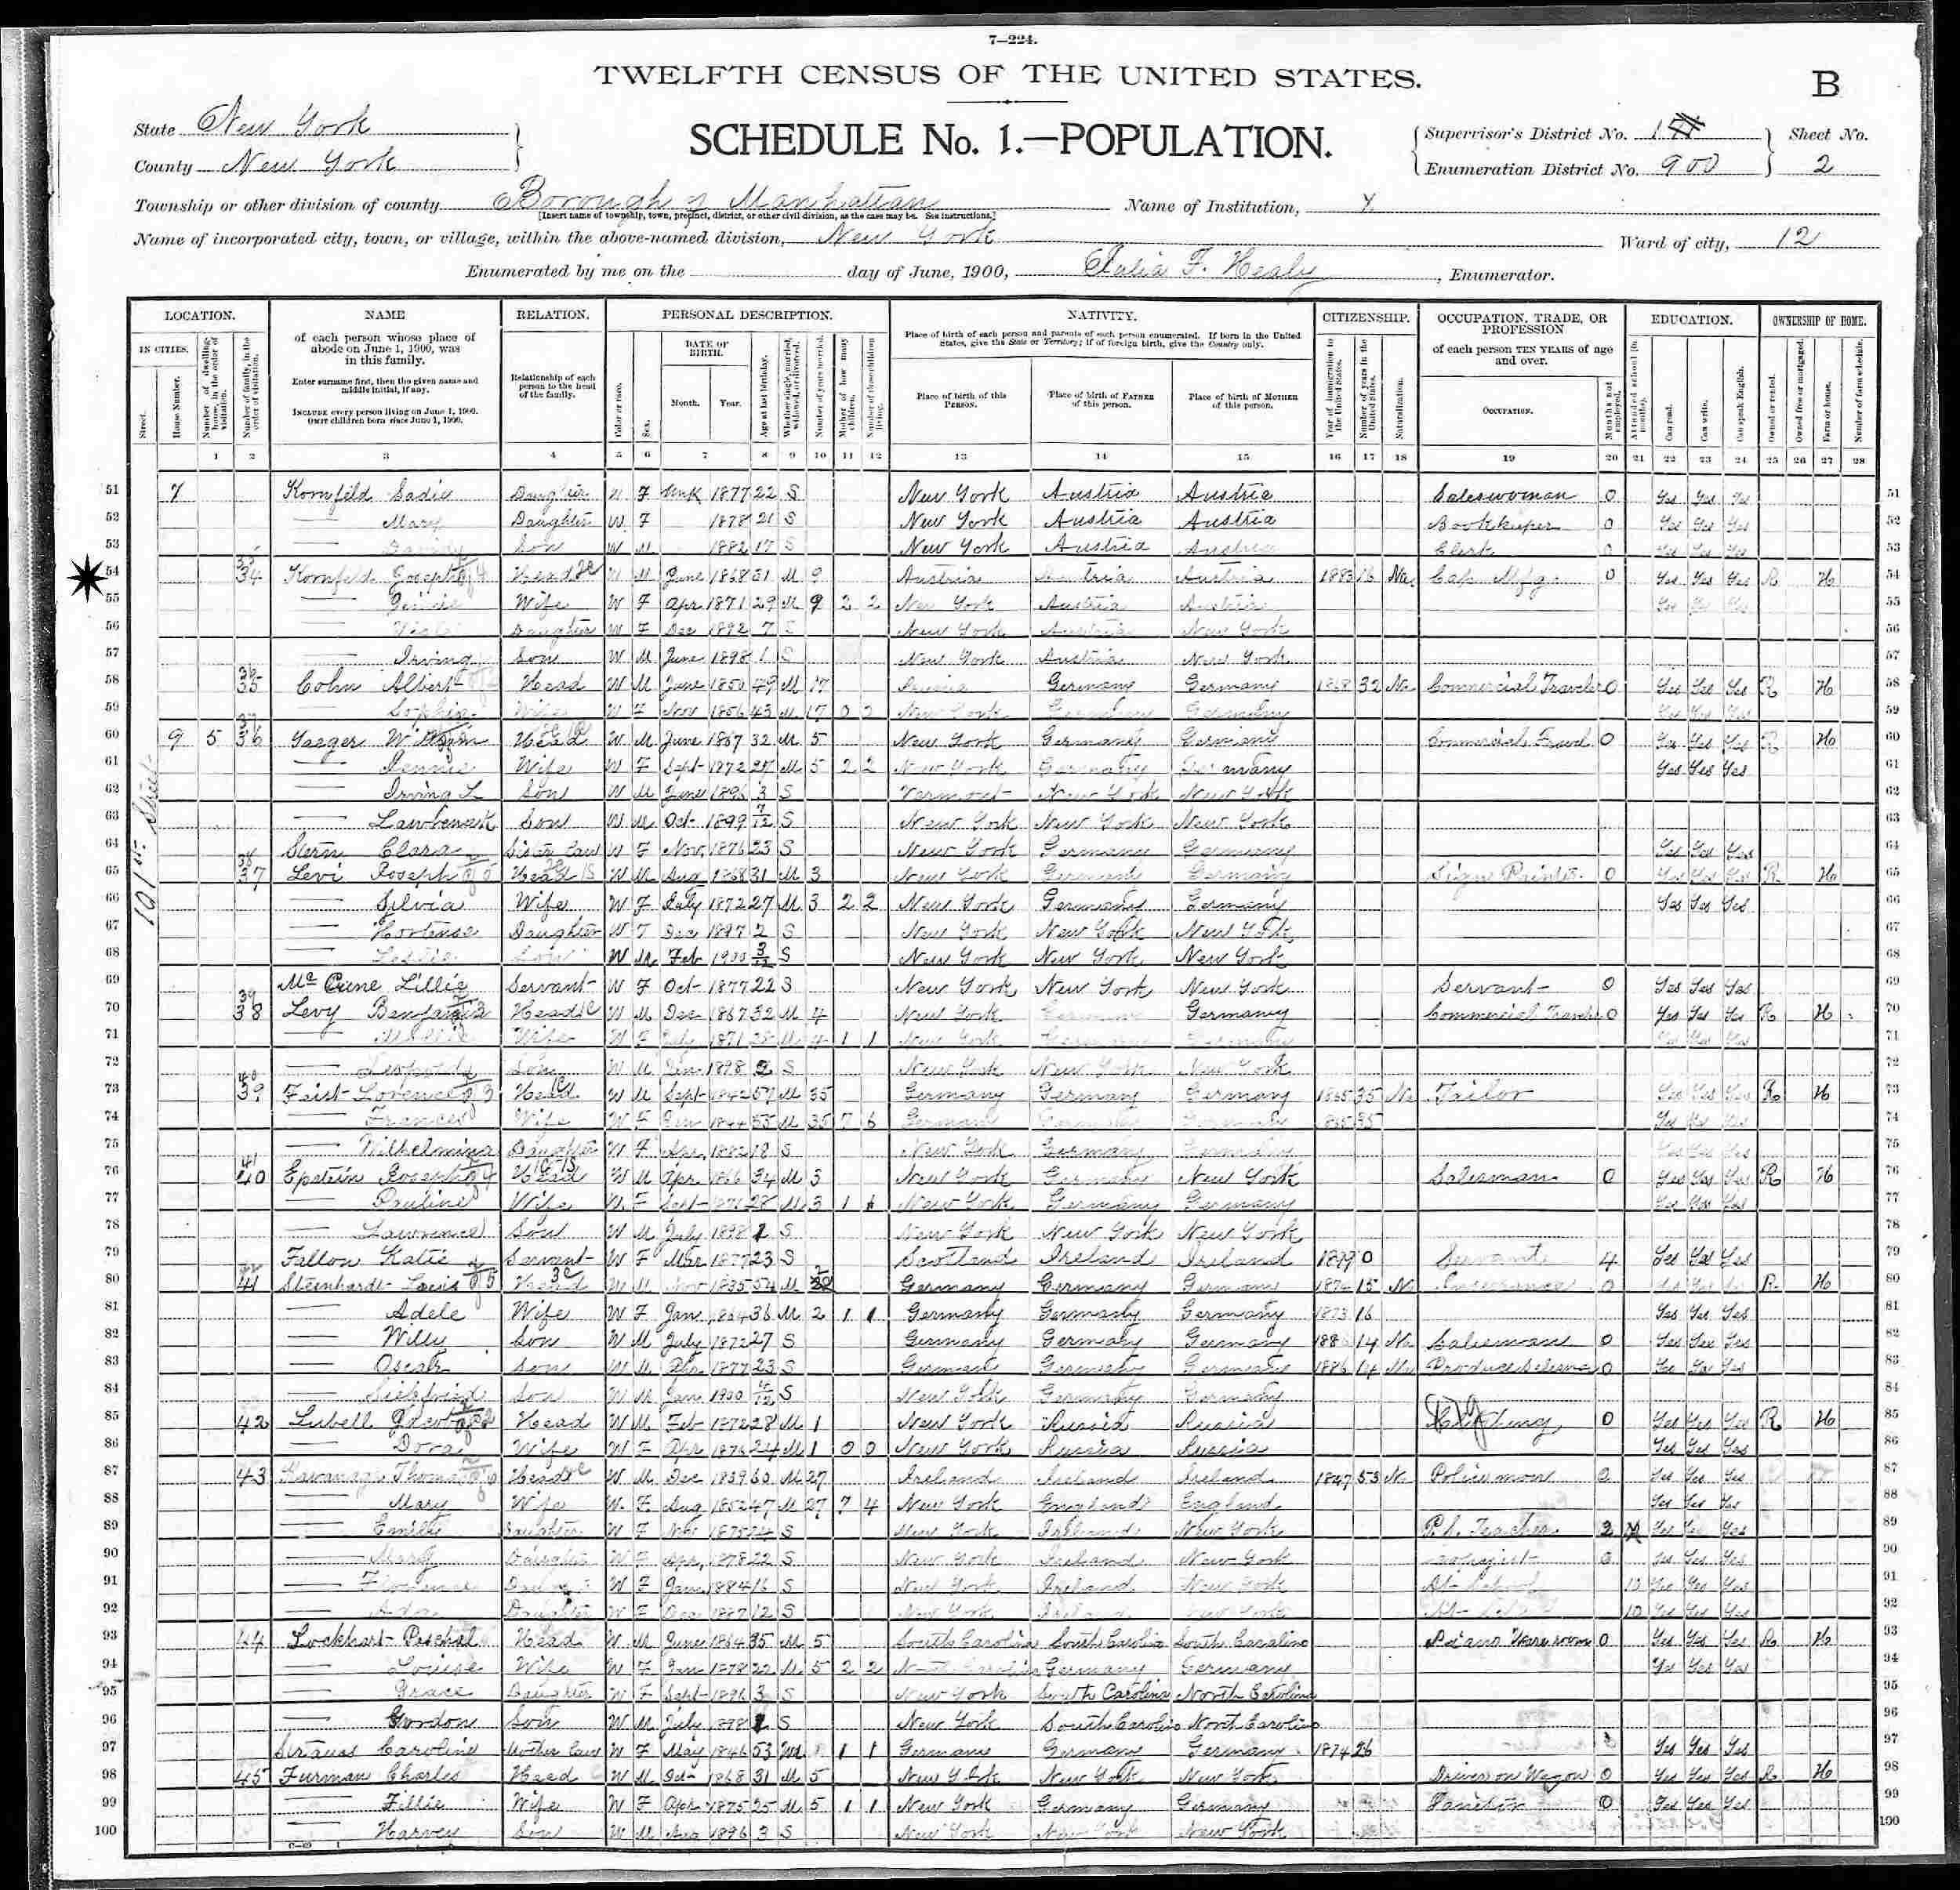 7—224.
TWELFTH CENSUS OF THE UNITED STATES.
B
State New York
SCHEDULE No. 1.—POPULATION.
Supervisor's District No. 1st Sheet No.
County New York
Enumeration District No. 900 2
Township or other division of county Borough of Manhattan Name of Institution, X
[Insert name of township, town, precinct, district, or other civil division, as the case may be. See instructions.]
Name of incorporated city, town, or village, within the above-named division, New York Ward of city, 12
Enumerated by me on the day of June, 1900, Julia F. Healy, Enumerator.
LOCATION. NAME RELATION. PERSONAL DESCRIPTION. NATIVITY. CITIZENSHIP. OCCUPATION, TRADE, OR PROFESSION EDUCATION. OWNERSHIP OF HOME.
IN CITIES. of each person whose place of abode on June 1, 1900, was in this family.
Enter surname first, then the given name and middle initial, if any.
INCLUDE every person living on June 1, 1900. OMIT children born since June 1, 1900.
Relationship of each person to the head of the family.
DATE OF BIRTH. Month. Year.
Place of birth of each person and parents of each person enumerated. If born in the United States, give the State or Territory; if of foreign birth, give the Country only.
Place of birth of this PERSON. Place of birth of FATHER of this person. Place of birth of MOTHER of this person.
of each person TEN YEARS of age and over.
OCCUPATION.
Street. House Number. Number of dwelling-house, in the order of visitation. Number of family, in the order of visitation. Color or race. Sex. Age at last birthday. Whether single, married, widowed, or divorced. Number of years married. Mother of how many children. Number of these children living. Year of immigration to the United States. Number of years in the United States. Naturalization. Months not employed. Attended school (in months). Can read. Can write. Can speak English. Owned or rented. Owned free or mortgaged. Farm or house. Number of farm schedule.
1 2 3 4 5 6 7 8 9 10 11 12 13 14 15 16 17 18 19 20 21 22 23 24 25 26 27 28
101st Street
51 7 Kornfeld Sadie Daughter W F Unk 1877 22 S New York Austria Austria Saleswoman 0 Yes Yes Yes 51
52 — Mary Daughter W F 1878 21 S New York Austria Austria Bookkeeper 0 Yes Yes Yes 52
53 — Son W M 1882 17 S New York Austria Austria Clerk 0 Yes Yes Yes 53
54 34 Kornfeld Joseph Head W M June 1868 31 M 9 Austria Austria Austria 1883 16 Na Cap Mfg. 0 Yes Yes Yes R H 54
55 — Wife W F Apr 1871 29 M 9 2 2 New York Austria Austria Yes Yes Yes 55
56 — Daughter W F Dec 1892 7 S New York Austria New York 56
57 — Irving Son W M June 1898 1 S New York Austria New York 57
58 35 Cohn Albert Head W M June 1850 49 M 17 Germany Germany 1868 32 Na Commercial Traveler 0 Yes Yes Yes R H 58
59 — Sophia Wife W F Nov 1856 43 M 17 0 0 New York Germany Germany Yes Yes Yes 59
60 9 5 36 Yaeger William Head W M June 1867 32 M 5 New York Germany Germany Commercial Travel 0 Yes Yes Yes R H 60
61 — Jennie Wife W F Sept 1872 27 M 5 2 2 New York Germany Germany Yes Yes Yes 61
62 — Irving L Son W M June 1896 3 S Vermont New York New York 62
63 — Lawrence Son W M Oct 1899 7/12 S New York New York New York 63
64 Stern Clara Sister Law W F Nov 1876 23 S New York Germany Germany Yes Yes Yes 64
65 37 Levi Joseph Head W M Aug 1868 31 M 3 New York Germany Germany Sign Painter 0 Yes Yes Yes R H 65
66 — Silvia Wife W F July 1872 27 M 3 2 2 New York Germany Germany Yes Yes Yes 66
67 — Hortense Daughter W F Dec 1897 2 S New York New York New York 67
68 — Leslie Son W M Feb 1900 3/12 S New York New York New York 68
69 McCune Lillie Servant W F Oct 1877 22 S New York New York New York Servant 0 Yes Yes Yes 69
70 38 Levy Benjamin Head W M Dec 1867 32 M 4 New York Germany Commercial Traveler 0 Yes Yes Yes R H 70
71 — Wife W F July 1871 28 M 4 1 1 New York Germany Germany Yes Yes Yes 71
72 — Leopold Son W M Jan 1898 2 S New York New York New York 72
73 39 Feist Lorence Head W M Sept 1842 57 M 35 Germany Germany Germany 1865 35 Na Tailor Yes Yes Yes R H 73
74 — Frances Wife W F Jan 1844 55 M 35 7 6 Germany Germany Germany 1865 35 Yes Yes Yes 74
75 — Wilhelmina Daughter W F Apr 1882 18 S New York Germany Germany Yes Yes Yes 75
76 40 Epstein Joseph Head W M Apr 1866 34 M 3 New York Germany New York Salesman 0 Yes Yes Yes R H 76
77 — Pauline Wife W F Sept 1871 28 M 3 1 1 New York Germany Germany Yes Yes Yes 77
78 — Lawrence Son W M July 1898 1 S New York New York New York 78
79 Fallon Katie Servant W F Mar 1877 23 S Scotland Ireland Ireland 1899 0 Servant 4 Yes Yes Yes 79
80 41 Steinhardt Louis Head W M Nov 1835 54 M 2 Germany Germany Germany 1874 15 Na Insurance 0 Yes Yes Yes R H 80
81 — Adele Wife W F Jan 1864 36 M 2 1 1 Germany Germany Germany 1873 16 Yes Yes Yes 81
82 — Willy Son W M July 1872 27 S Germany Germany Germany 1886 14 Na Salesman 0 Yes Yes Yes 82
83 — Oscar Son W M Apr 1877 23 S Germany Germany Germany 1886 14 Na Produce Salesman 0 Yes Yes Yes 83
84 — Siegfried Son W M Jan 1900 4/12 S New York Germany Germany 84
85 42 Lubell Jacob Head W M Feb 1872 28 M 1 New York Russia Russia Clothing 0 Yes Yes Yes R H 85
86 — Dora Wife W F Apr 1876 24 M 1 0 0 New York Russia Russia Yes Yes Yes 86
87 43 Kavanagh Thomas Head W M Dec 1839 60 M 27 Ireland Ireland Ireland 1847 53 Na Policeman 0 Yes Yes Yes 87
88 — Mary Wife W F Aug 1852 47 M 27 7 4 New York England England Yes Yes Yes 88
89 — Emily Daughter W F Nov 1875 24 S New York Ireland New York P.S. Teacher 2 Yes Yes Yes 89
90 — Mary Daughter W F Apr 1878 22 S New York Ireland New York Copyist 0 Yes Yes Yes 90
91 — Florence Daughter W F Jan 1884 16 S New York Ireland New York At School 10 Yes Yes Yes 91
92 — Ada Daughter W F 1887 12 S New York Ireland New York At School 10 Yes Yes Yes 92
93 44 Lockhart Paschal Head W M June 1864 35 M 5 South Carolina South Carolina South Carolina Piano Wareroom 0 Yes Yes Yes R H 93
94 — Louise Wife W F Jan 1878 22 M 5 2 2 North Carolina Germany Germany Yes Yes Yes 94
95 — Grace Daughter W F Sept 1896 3 S New York South Carolina North Carolina 95
96 — Gordon Son W M July 1898 1 S New York South Carolina North Carolina 96
97 Strauss Caroline Mother Law W F May 1846 53 Wd 1 1 Germany Germany Germany 1874 26 Yes Yes Yes 97
98 45 Furman Charles Head W M Oct 1868 31 M 5 New York New York New York Driver on Wagon 0 Yes Yes Yes R H 98
99 — Tillie Wife W F Apr 1875 25 M 5 1 1 New York Germany Germany Janitor 0 Yes Yes Yes 99
100 — Harvey Son W M Aug 1896 3 S New York New York New York 100